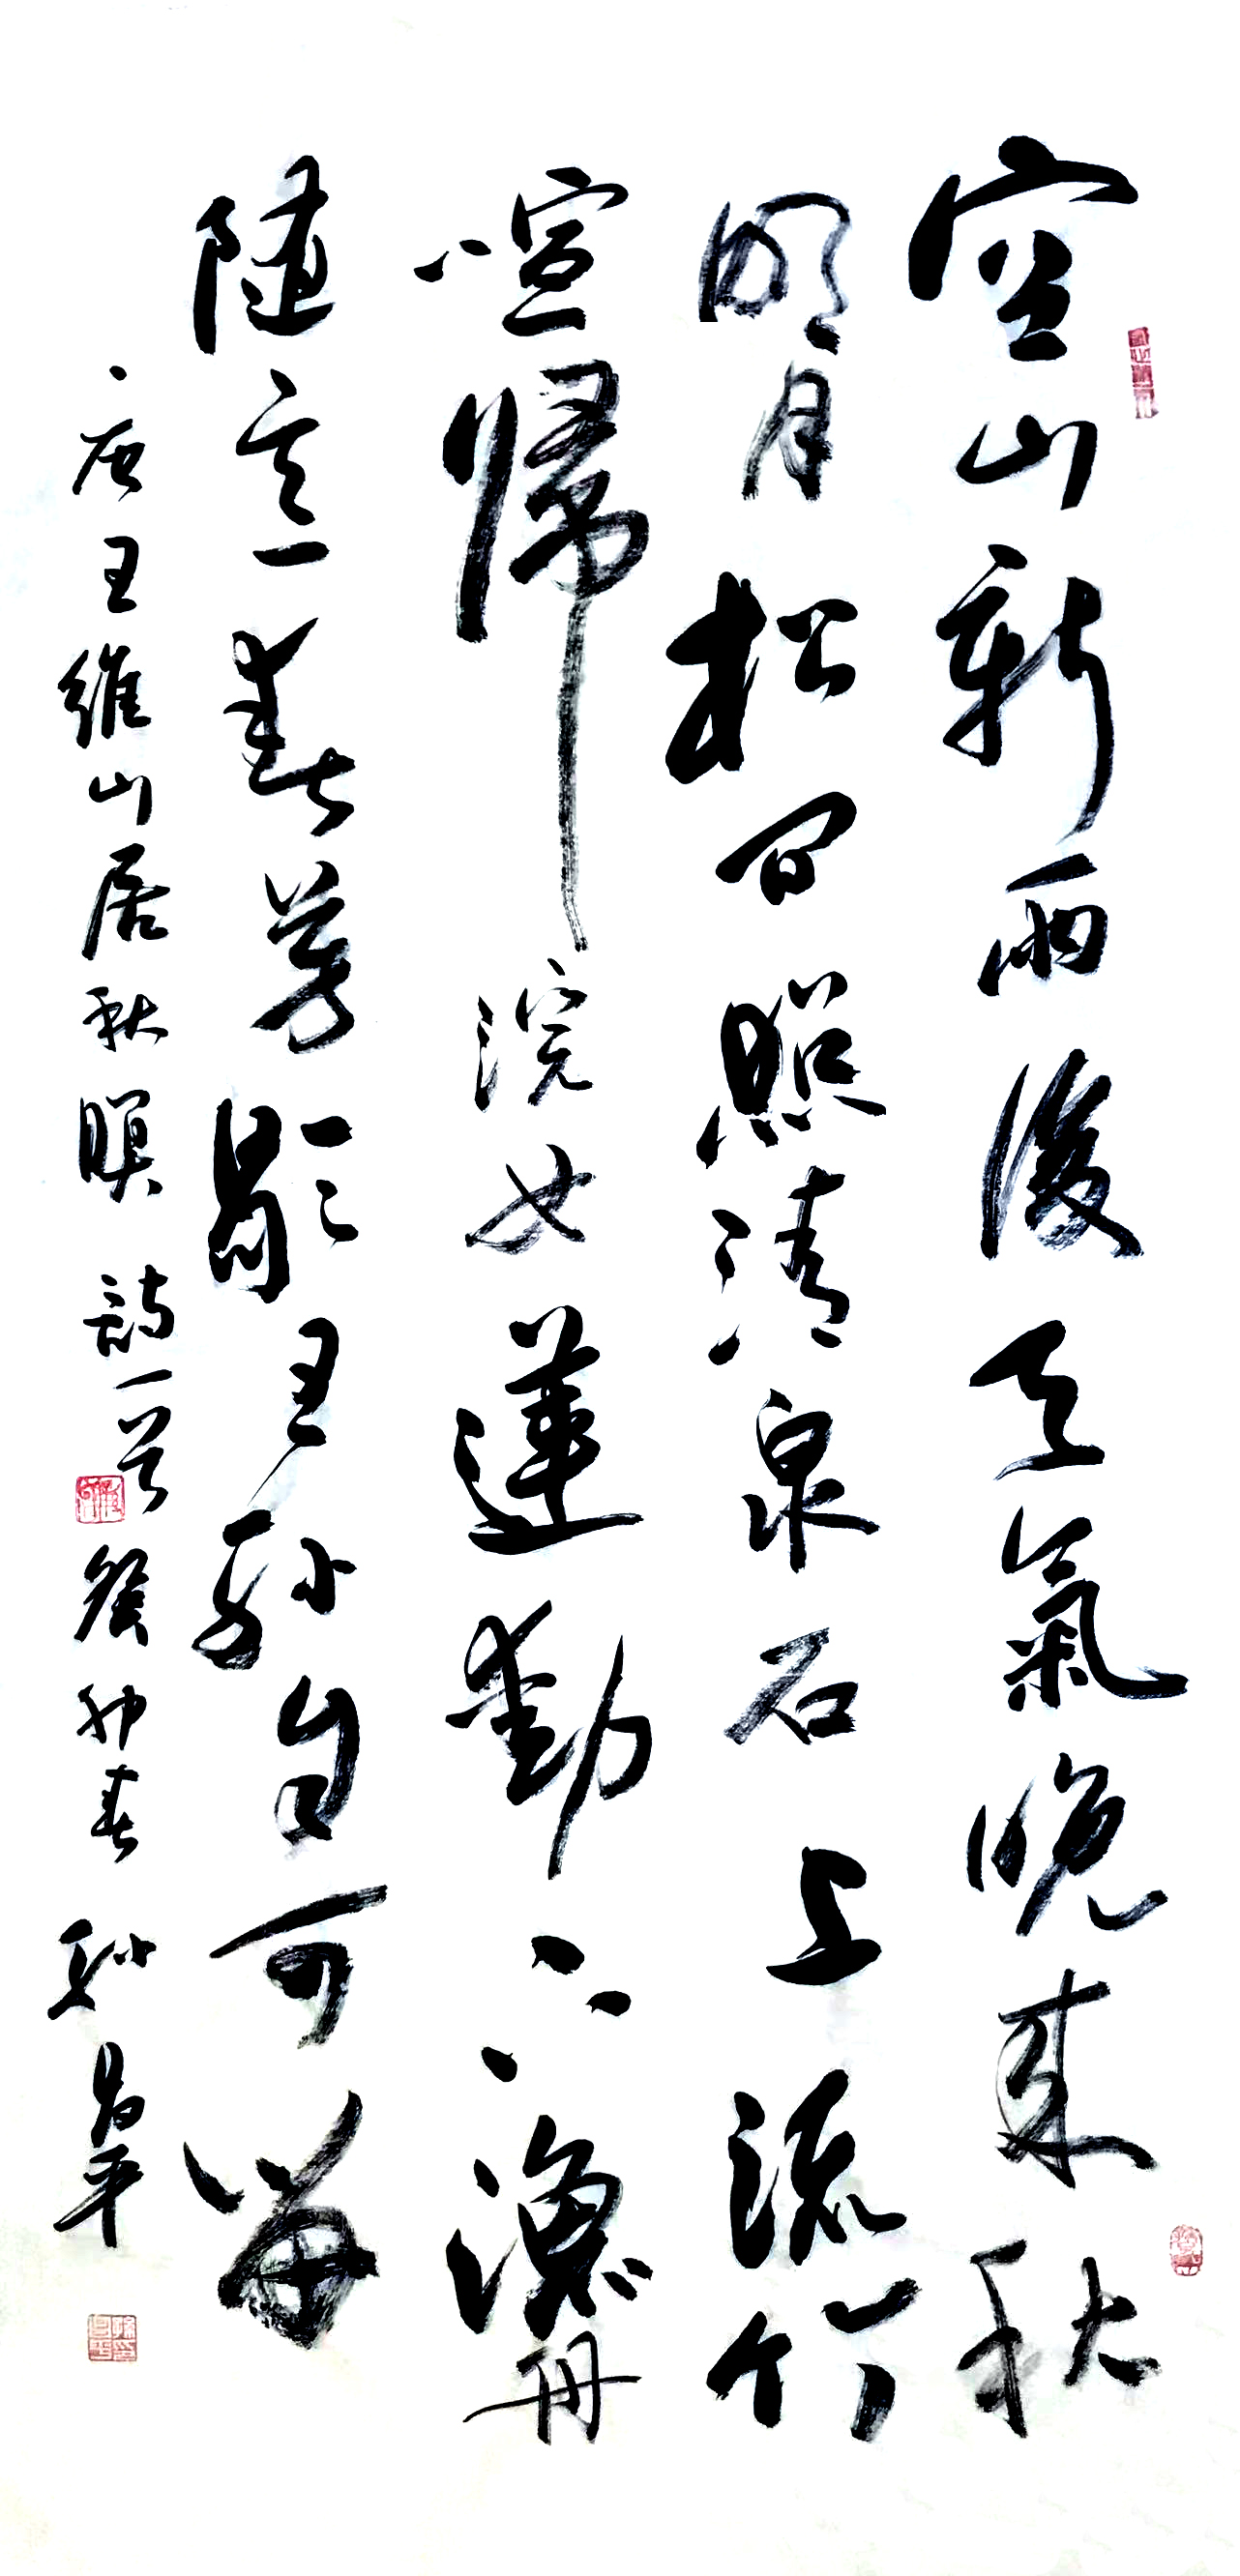 空山新雨後天氣晚來秋
明月松間照清泉石上流竹
喧歸浣女蓮動下漁舟
隨意春芳歇王孫自可留
唐王維山居秋暝詩一首癸卯春孫昌平